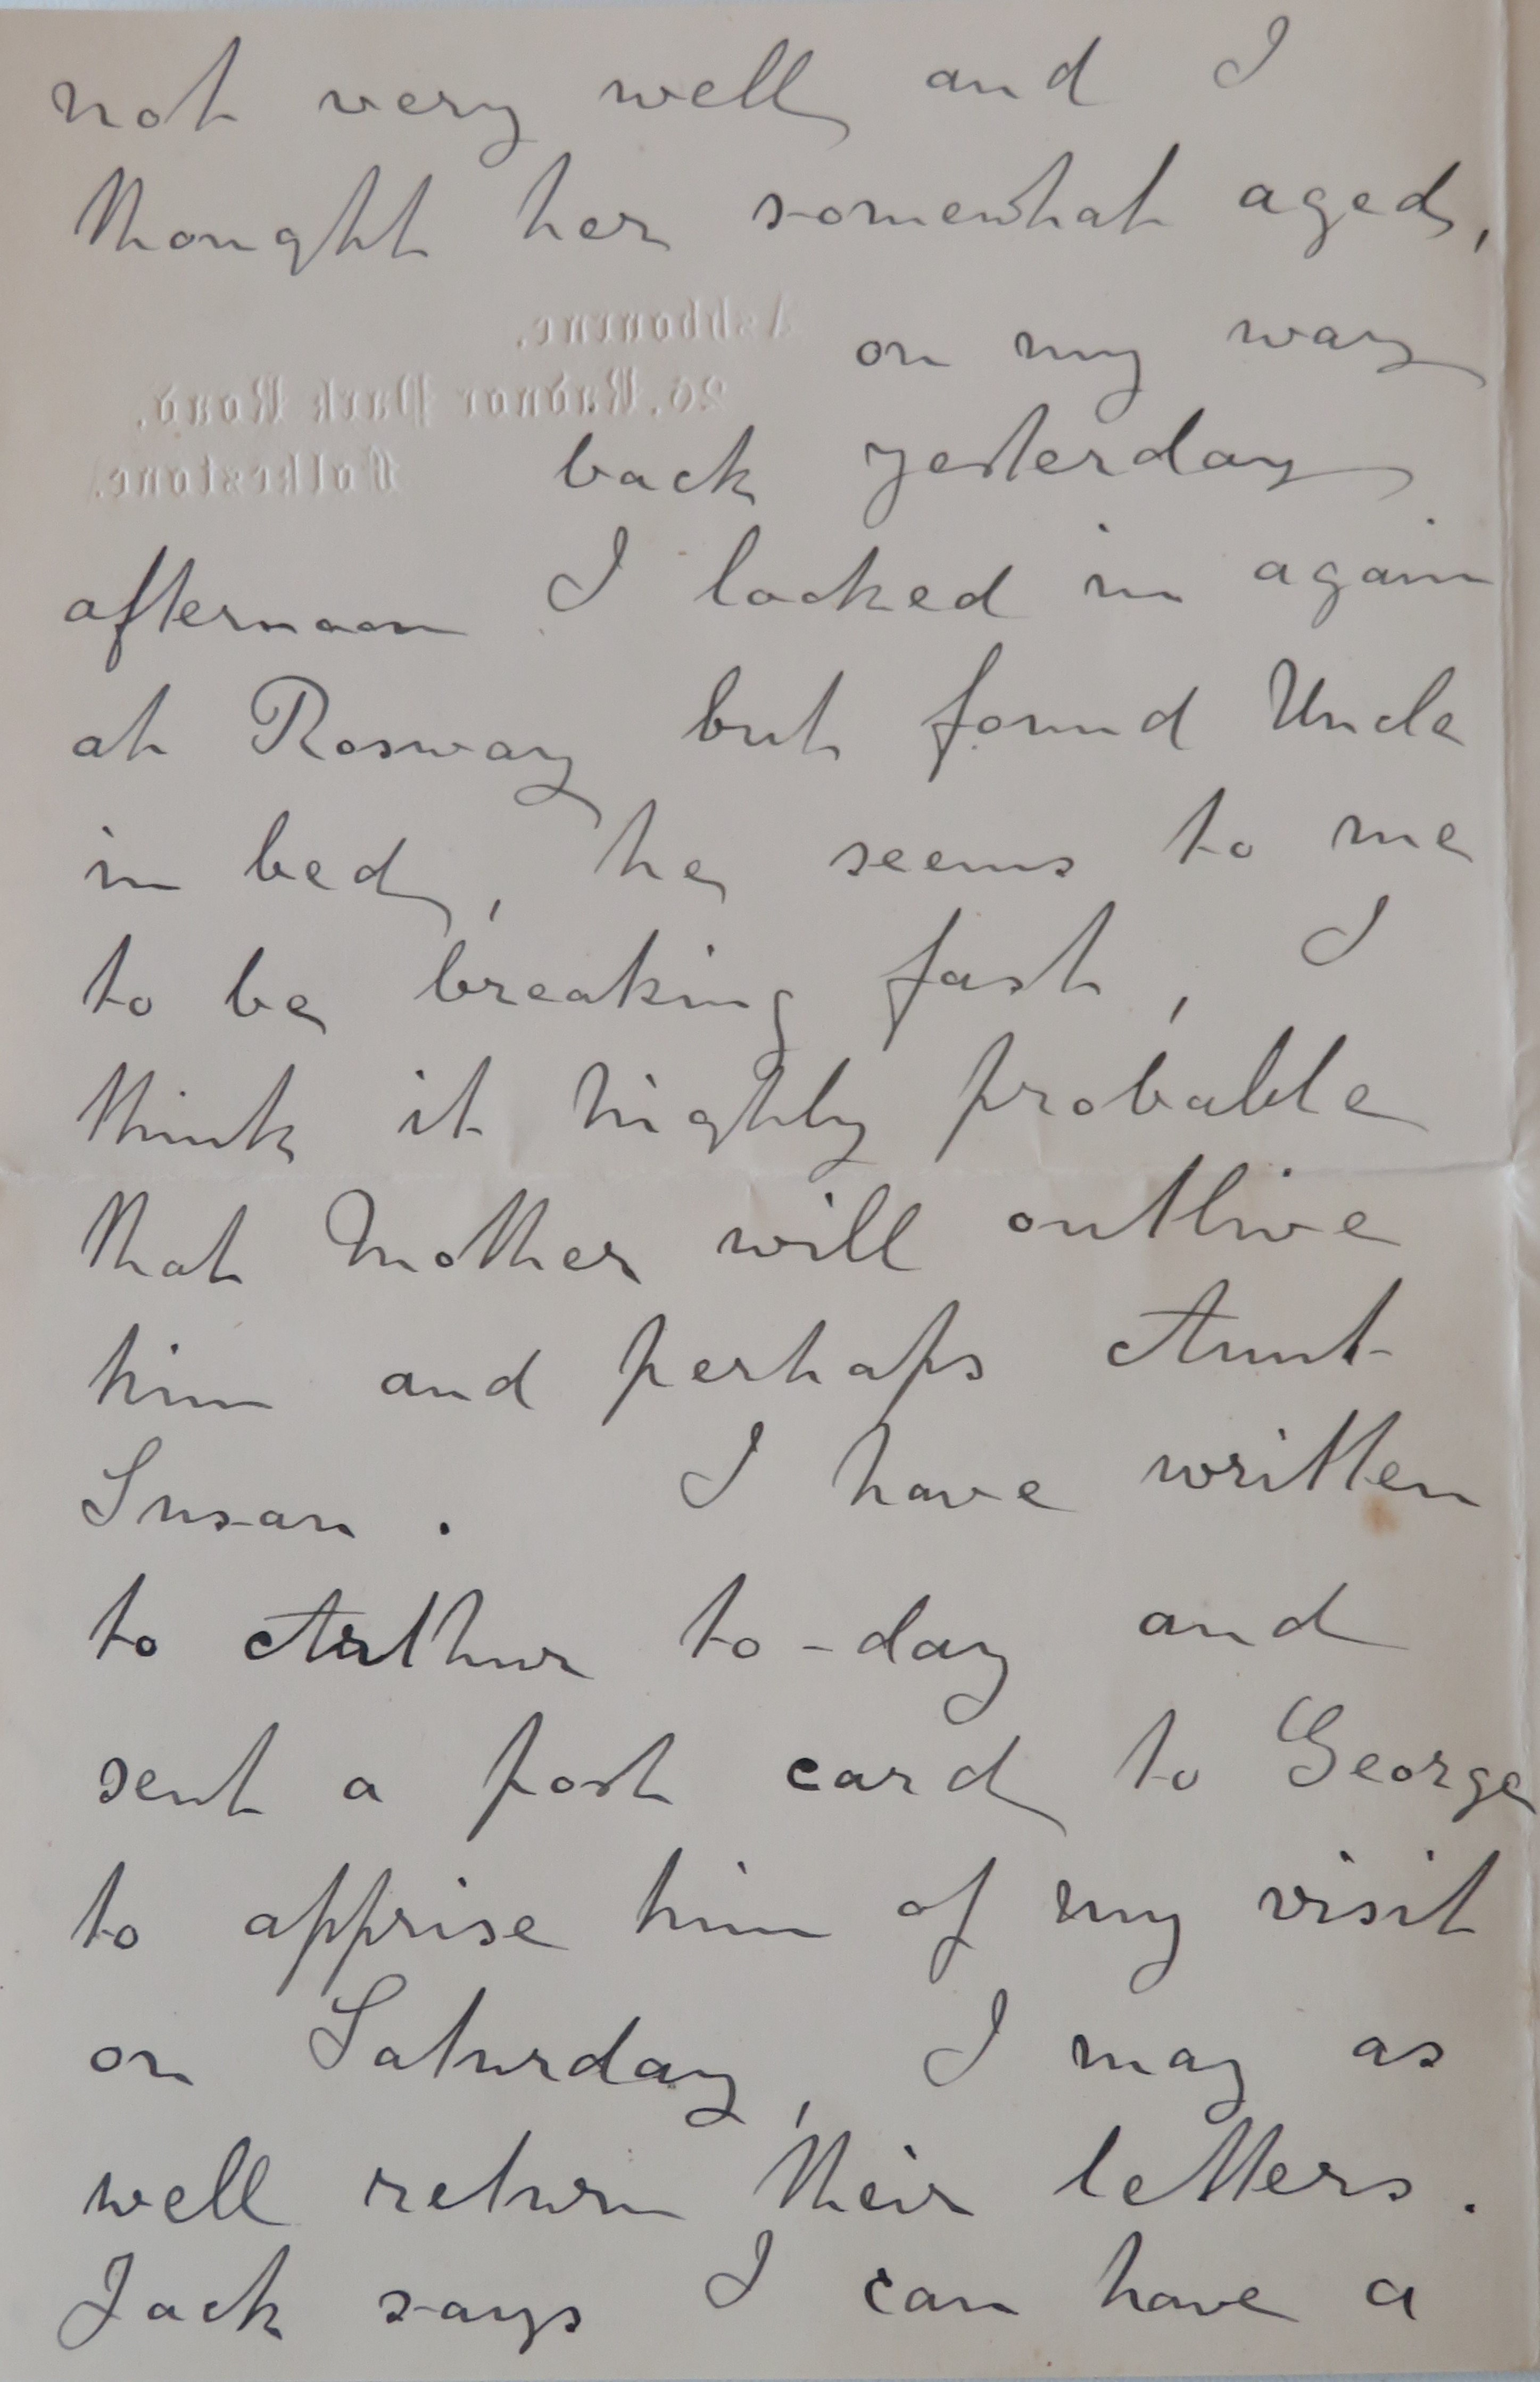 not very well and I
thought her somewhat aged,
Ashbourne.
on my way
26. Radnor Park Road.
back yesterday
Folkestone.
afternoon I looked in again
at Rosway but found Uncle
in bed, he seems to me
to be breaking fast, I
think it highly probable
that Mother will outlive
him and perhaps Aunt
Susan. I have written
to Arthur to-day and
sent a post card to George
to apprise him of my visit
on Saturday, I may as
well return their letters.
Jack says I can have a